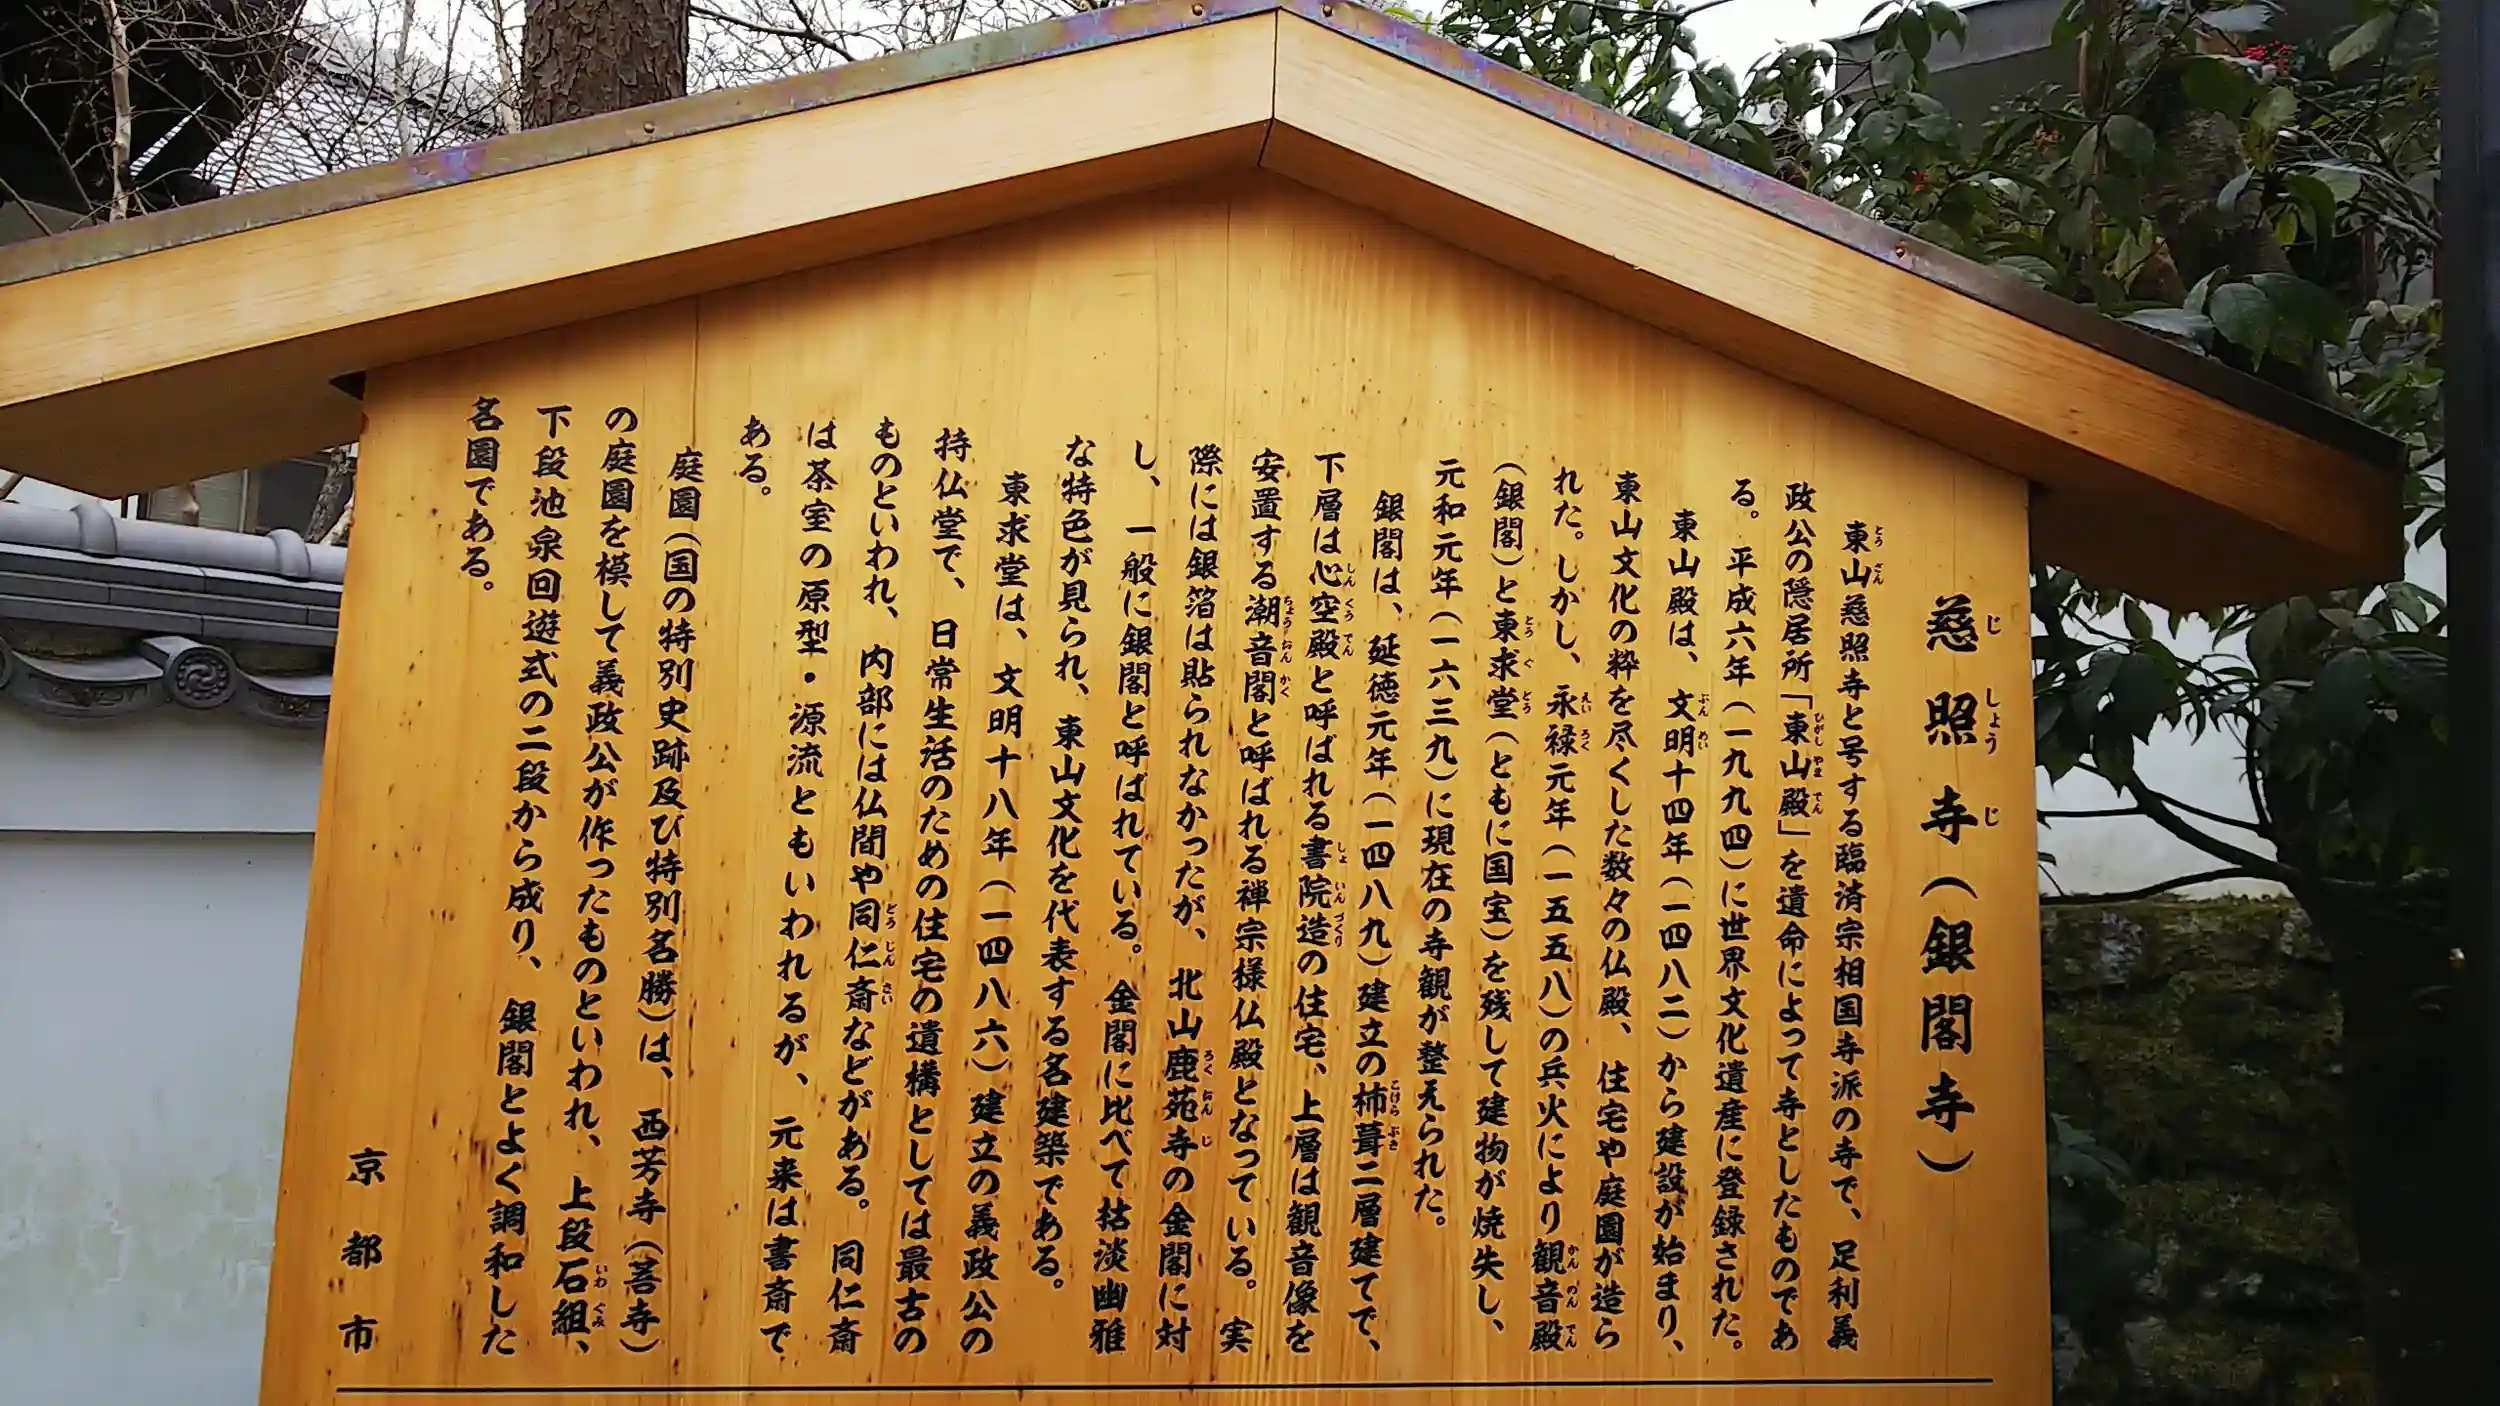 慈照寺（銀閣寺）
東山慈照寺と号する臨済宗相国寺派の寺で、足利義
政公の隠居所「東山殿」を遺命によって寺としたものであ
る。平成六年（一九九四）に世界文化遺産に登録された。
東山殿は、文明十四年（一四八二）から建設が始まり、
東山文化の粋を尽くした数々の仏殿、住宅や庭園が造ら
れた。しかし、永禄元年（一五五八）の兵火により観音殿
（銀閣）と東求堂（ともに国宝）を残して建物が焼失し、
元和元年（一六三九）に現在の寺観が整えられた。
銀閣は、延徳元年（一四八九）建立の杮葺二層建てで、
下層は心空殿と呼ばれる書院造の住宅、上層は観音像を
安置する潮音閣と呼ばれる禅宗様仏殿となっている。実
際には銀箔は貼られなかったが、北山鹿苑寺の金閣に対
し、一般に銀閣と呼ばれている。金閣に比べて枯淡幽雅
な特色が見られ、東山文化を代表する名建築である。
東求堂は、文明十八年（一四八六）建立の義政公の
持仏堂で、日常生活のための住宅の遺構としては最古の
ものといわれ、内部には仏間や同仁斎などがある。同仁斎
は茶室の原型・源流ともいわれるが、元来は書斎で
ある。
庭園（国の特別史跡及び特別名勝）は、西芳寺（苔寺）
の庭園を模して義政公が作ったものといわれ、上段石組、
下段池泉回遊式の二段から成り、銀閣とよく調和した
名園である。
京都市